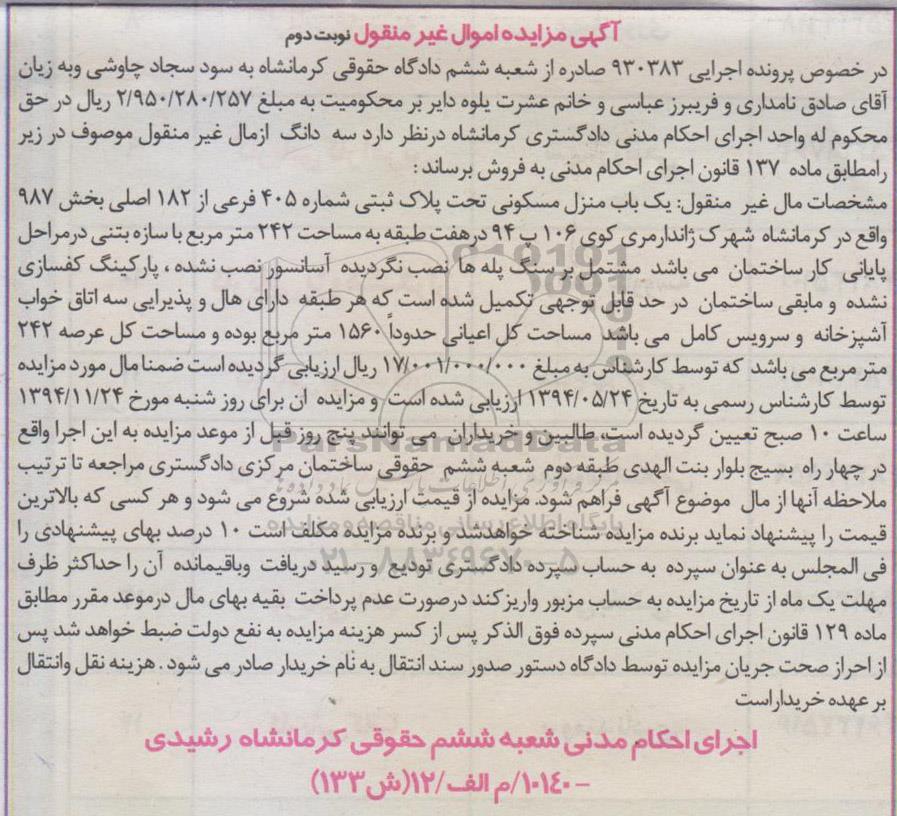 آگهی مزایده اموال غیر منقول نوبت دوم
در خصوص پرونده اجرایی ۹۳۰۳۸۳ صادره از شعبه ششم دادگاه حقوقی کرمانشاه به سود سجاد چاوشی وبه زیان
آقای صادق نامداری و فریبرز عباسی و خانم عشرت یلوه دایر بر محکومیت به مبلغ ۲/۹۵۰/۲۸۰/۲۵۷ ریال در حق
محکوم له واحد اجرای احکام مدنی دادگستری کرمانشاه درنظر دارد سه دانگ ازمال غیر منقول موصوف در زیر
رامطابق ماده ۱۳۷ قانون اجرای احکام مدنی به فروش برساند :
مشخصات مال غیر منقول: یک باب منزل مسکونی تحت پلاک ثبتی شماره ۴۰۵ فرعی از ۱۸۲ اصلی بخش ۹۸۷
واقع در کرمانشاه شهرک ژاندارمری کوی ۱۰۶ پ ۹۴ درهفت طبقه به مساحت ۲۴۲ متر مربع با سازه بتنی درمراحل
پایانی کار ساختمان می باشد مشتمل بر سنگ پله ها نصب نگردیده آسانسور نصب نشده ، پارکینگ کفسازی
نشده و مابقی ساختمان در حد قابل توجهی تکمیل شده است که هر طبقه دارای هال و پذیرایی سه اتاق خواب
آشپزخانه و سرویس کامل می باشد مساحت کل اعیانی حدوداً ۱۵۶۰ متر مربع بوده و مساحت کل عرصه ۲۴۲
متر مربع می باشد که توسط کارشناس به مبلغ ۱۷/۰۰۱/۰۰۰/۰۰۰ ریال ارزیابی گردیده است ضمنا مال مورد مزایده
توسط کارشناس رسمی به تاریخ ۱۳۹۴/۰۵/۲۴ ارزیابی شده است و مزایده ان برای روز شنبه مورخ ۱۳۹۴/۱۱/۲۴
ساعت ۱۰ صبح تعیین گردیده است، طالبین و خریداران می توانند پنج روز قبل از موعد مزایده به این اجرا واقع
در چهار راه بسیج بلوار بنت الهدی طبقه دوم شعبه ششم حقوقی ساختمان مرکزی دادگستری مراجعه تا ترتیب
ملاحظه آنها از مال موضوع آگهی فراهم شود. مزایده از قیمت ارزیابی شده شروع می شود و هر کسی که بالاترین
قیمت را پیشنهاد نماید برنده مزایده شناخته خواهدشد و برنده مزایده مکلف است ۱۰ درصد بهای پیشنهادی را
فی المجلس به عنوان سپرده به حساب سپرده دادگستری تودیع و رسید دریافت وباقیمانده آن را حداکثر ظرف
مهلت یک ماه از تاریخ مزایده به حساب مزبور واریز کند درصورت عدم پرداخت بقیه بهای مال درموعد مقرر مطابق
ماده ۱۲۹ قانون اجرای احکام مدنی سپرده فوق الذکر پس از کسر هزینه مزایده به نفع دولت ضبط خواهد شد پس
از احراز صحت جریان مزایده توسط دادگاه دستور صدور سند انتقال به نام خریدار صادر می شود . هزینه نقل وانتقال
بر عهده خریداراست
اجرای احکام مدنی شعبه ششم حقوقی کرمانشاه رشیدی
– ۱۰۱۴۰/م الف/۱۲(ش۱۳۳)
ParsNamadData
پایگاه اطلاع رسانی مناقصه و مزایده
۰۲۱-۸۸۳۴۹۶۷۰-۵